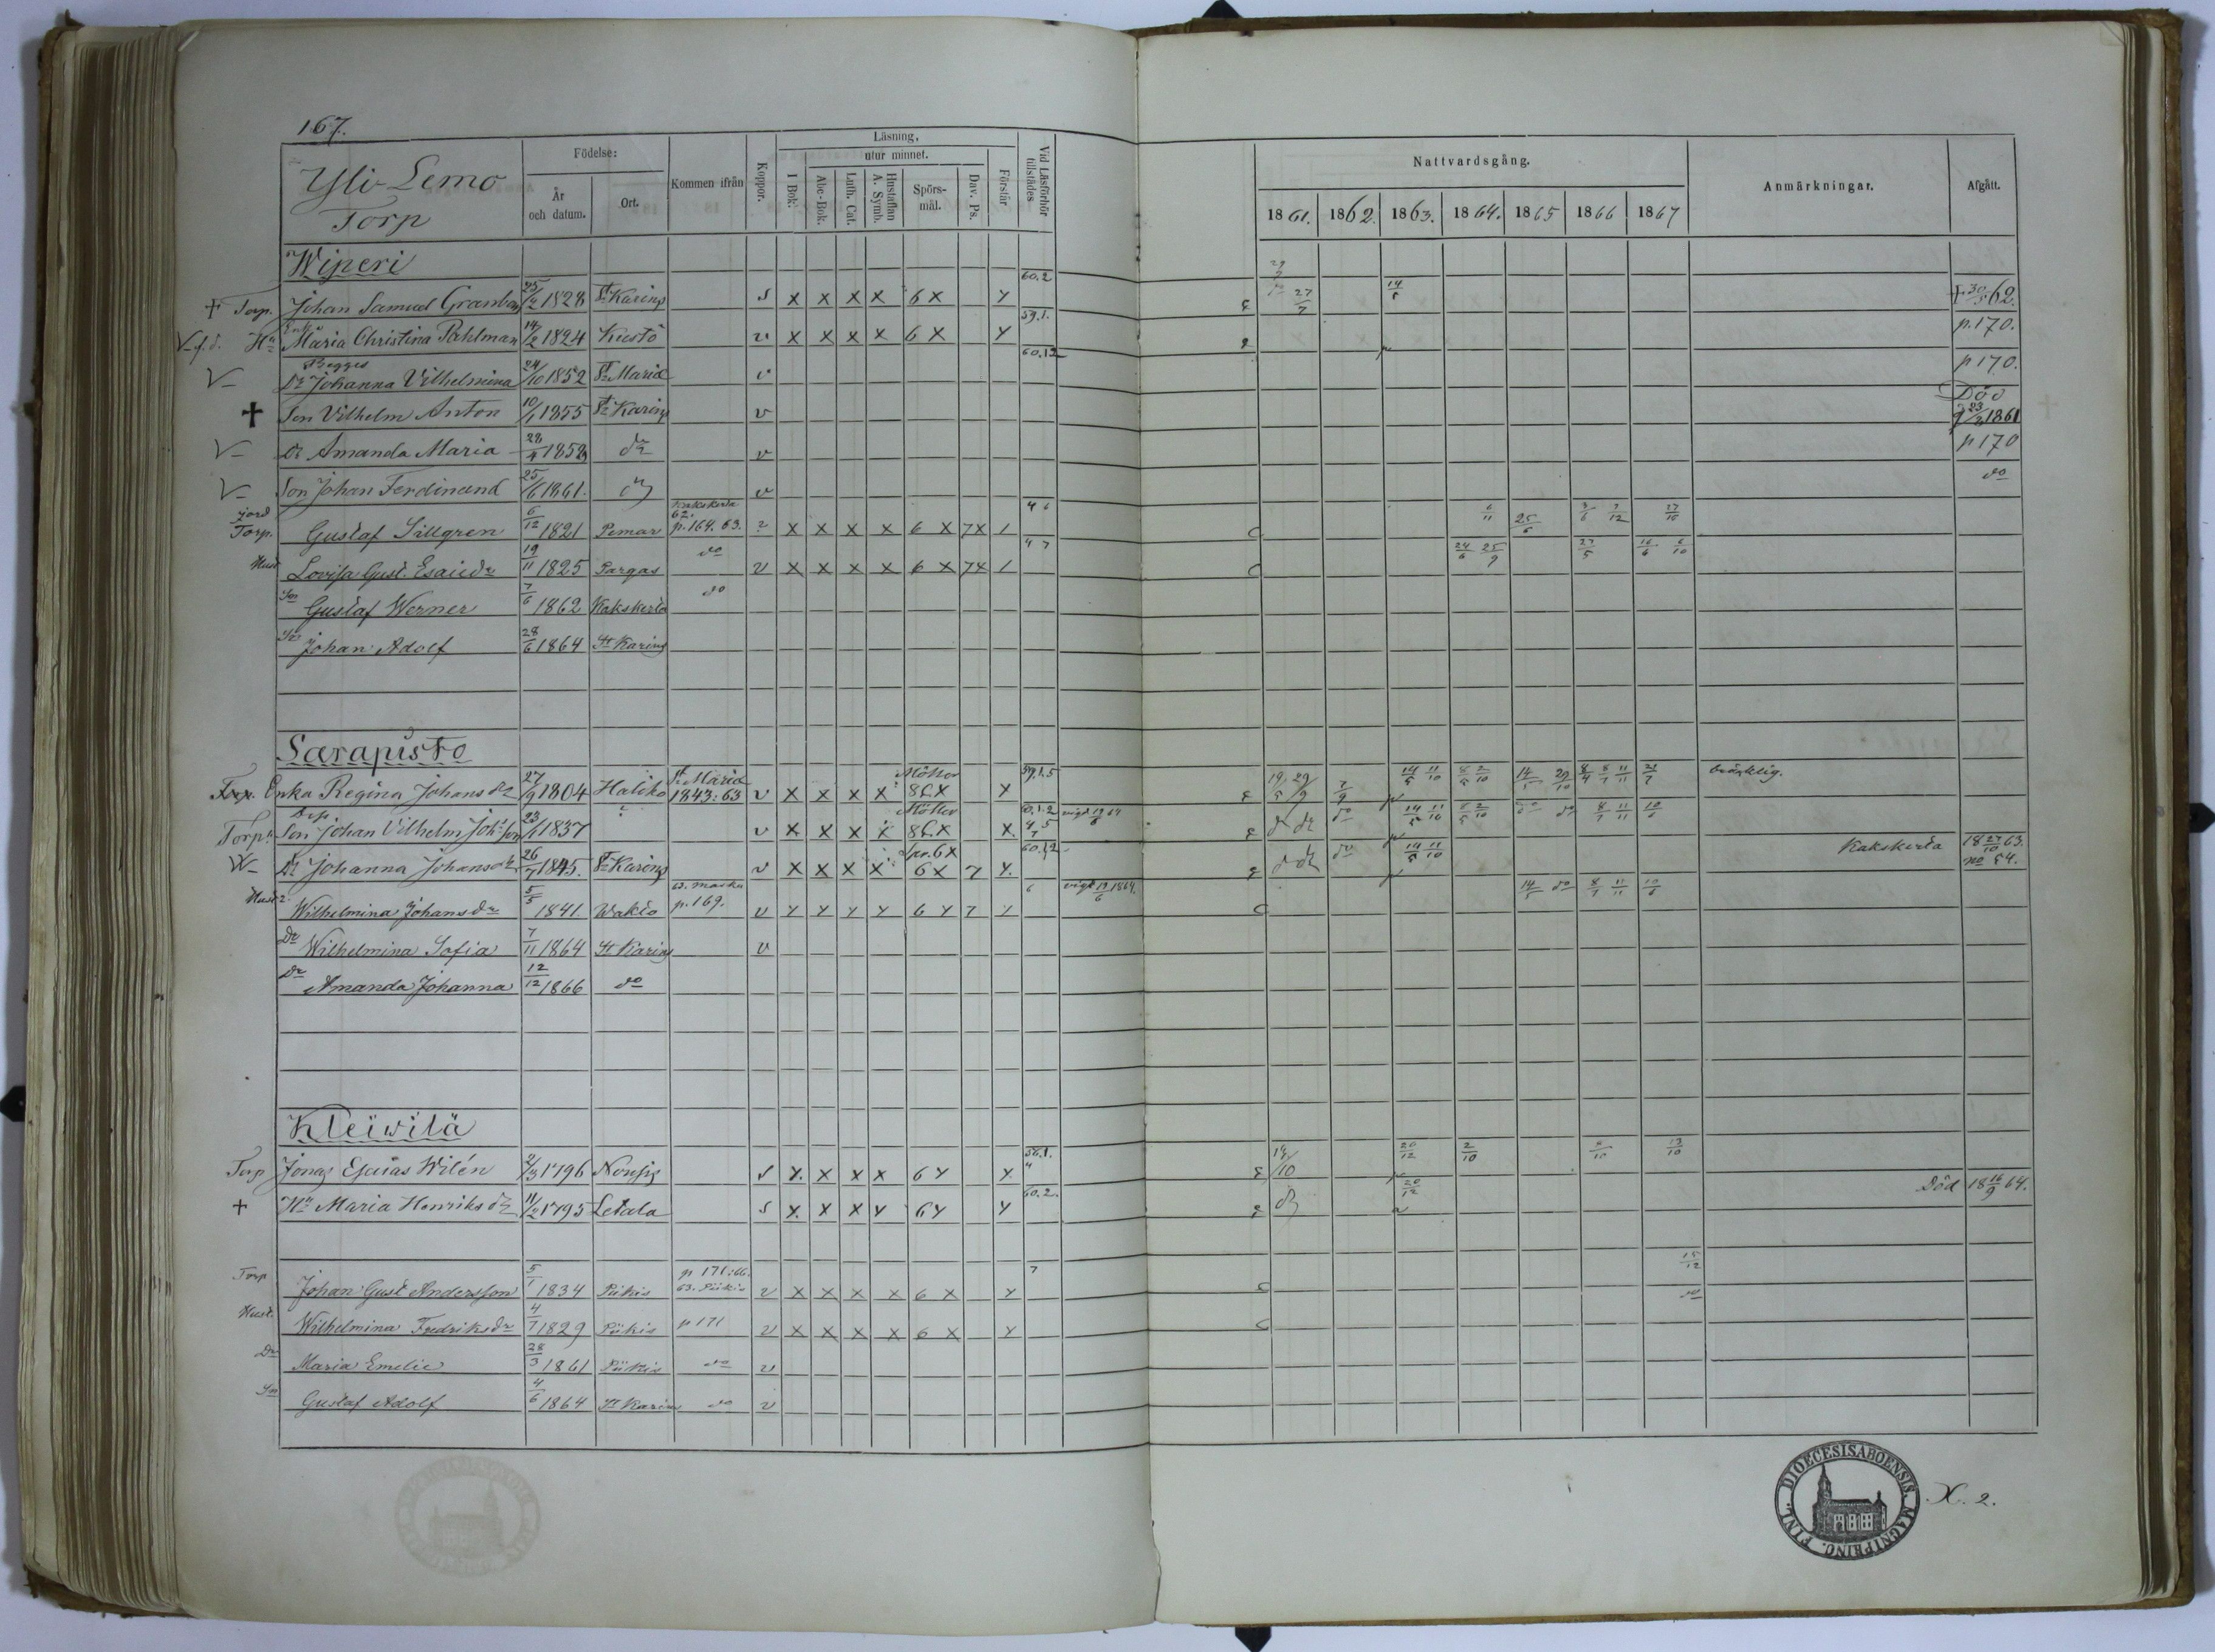 167.
Yli-Lemo
Torp
Födelse:
År
och datum.
Ort.
Kommen ifrån
Koppor.
Läsning,
utur minnet.
I Bok.
Abc-Bok.
Luth. Cat.
Hustaflan
A. Symb.
Spörs-
mål.
Dav. Ps.
Förstår
Vid Läsförhör
tillstädes
Nattvardsgång.
1861. 1862. 1863. 1864. 1865 1866 1867
Anmärkningar.
Afgått.
Wiperi
60.2
+ Torp. Johan Samuel 25/2 1828 St Karins s x x x x 6 x y 27/7 14/5 + 30/5 62.
59.1.
Hu Maria Christina Påhlman 14/2 1824 Kustö v x x x x 6 x y p. 170.
60.12
V Dr Johanna Vilhelmina 24/10 1852 St Maria v p 170.
+ Son Vilhelm Anton 10/1 1855 St Karins v Död 23/2 1861
V Dr Amanda Maria 28/4 1858 do v p 170
V Son Johan Ferdinand 25/6 1861. do v do
jord
Kakskerta
62.
Torp. Gustaf Sillgren 6/12 1821 Pemar p. 164. 63. ? x x x x 6 x 7x 1 6/11 25/6 3/6 7/12 27/10
Hust Lovisa Gust. Esaiedr 19/11 1825 Pargas do v x x x x 6 x 7x 1 4 7 24/6 25/9 27/5 16/6 6/10
Son Gustaf Werner 7/6 1862 Kakskerta do
Son Johan Adolf 28/6 1864 St Karins
Sarapisto
Torp. Enka Regina Johansdr 27/9 1804 Haliko St Maria 1843: 63 v x x x x 8 C x y 59.1.5 19/5 29/9 7/9 14/5 11/10 8/5 2/10 14/5 29/10 8/4 8/7 11/11 21/7 bräcklig.
Torp. Son Johan Vilhelm Johsson 23/1 1837 v x x x x 8 C x x. 60.1.2 vigt 19/6 64 do do do 14/5 11/10 8/5 2/10 do do 8/7 11/11 10/6
W Dr Johanna Johansdr 26/7 1845. St Karins v x x x x Spr. 6x 6 x 7 y. 60.1,2 do do do 14/5 11/10 Kakskerta 18 27/10 63. no 54.
Hust 2. Wilhelmina Johansdr 5/5 1841. Wakto 63. Masku p. 169. v y y y y 6 y 7 y 6 vigt 19/6 1864. 14/5 do 8/7 11/11 10/6
Dr Wilhelmina Sofia 7/11 1864 St Karins v
Dr Amanda Johanna 12/12 1866 do
Kleiwilä
Torp Jonas Esaias Wilén 2/3 1796 Nousis s x. x x x 6 y y. 19/10 20/12 2/10 13/10
+ Hu Maria Henriksdr 11/2 1795 Letala s y. x x y 6 y y 60.2. do 20/12 Död 18 16/9 64.
Torp Johan Gust. Andersson 5/1 1834 Piikis p 171:66. 63. Piikis v x x x x 6 x y 7 15/12
Hust. Wilhelmina Fredriksdr 4/7 1829 Piikis p 171 v x x x x 6 x y do
Dr Maria Emelie 28/3 1861 Piikis do v
Son Gustaf Adolf 4/6 1864 St Karins do v
DIOECESIS ABOENSIS. MAGNI PRINC. FINL.
X. 2.